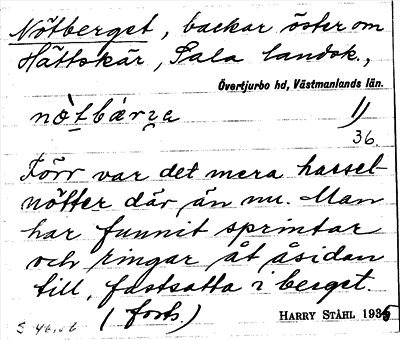 Nötberget, backar öster om
Hättskär, Sala landsk.,
Övertjurbo hd, Västmanlands län.
nò̀tbárɣa 1)
36.
Förr var det mera hassel-
nötter där än nu. Man
har funnit sprintar
och ringar åt åsidan
till, fastsatta i berget.
(forts.)
HARRY STÅHL 1935
S 46.06